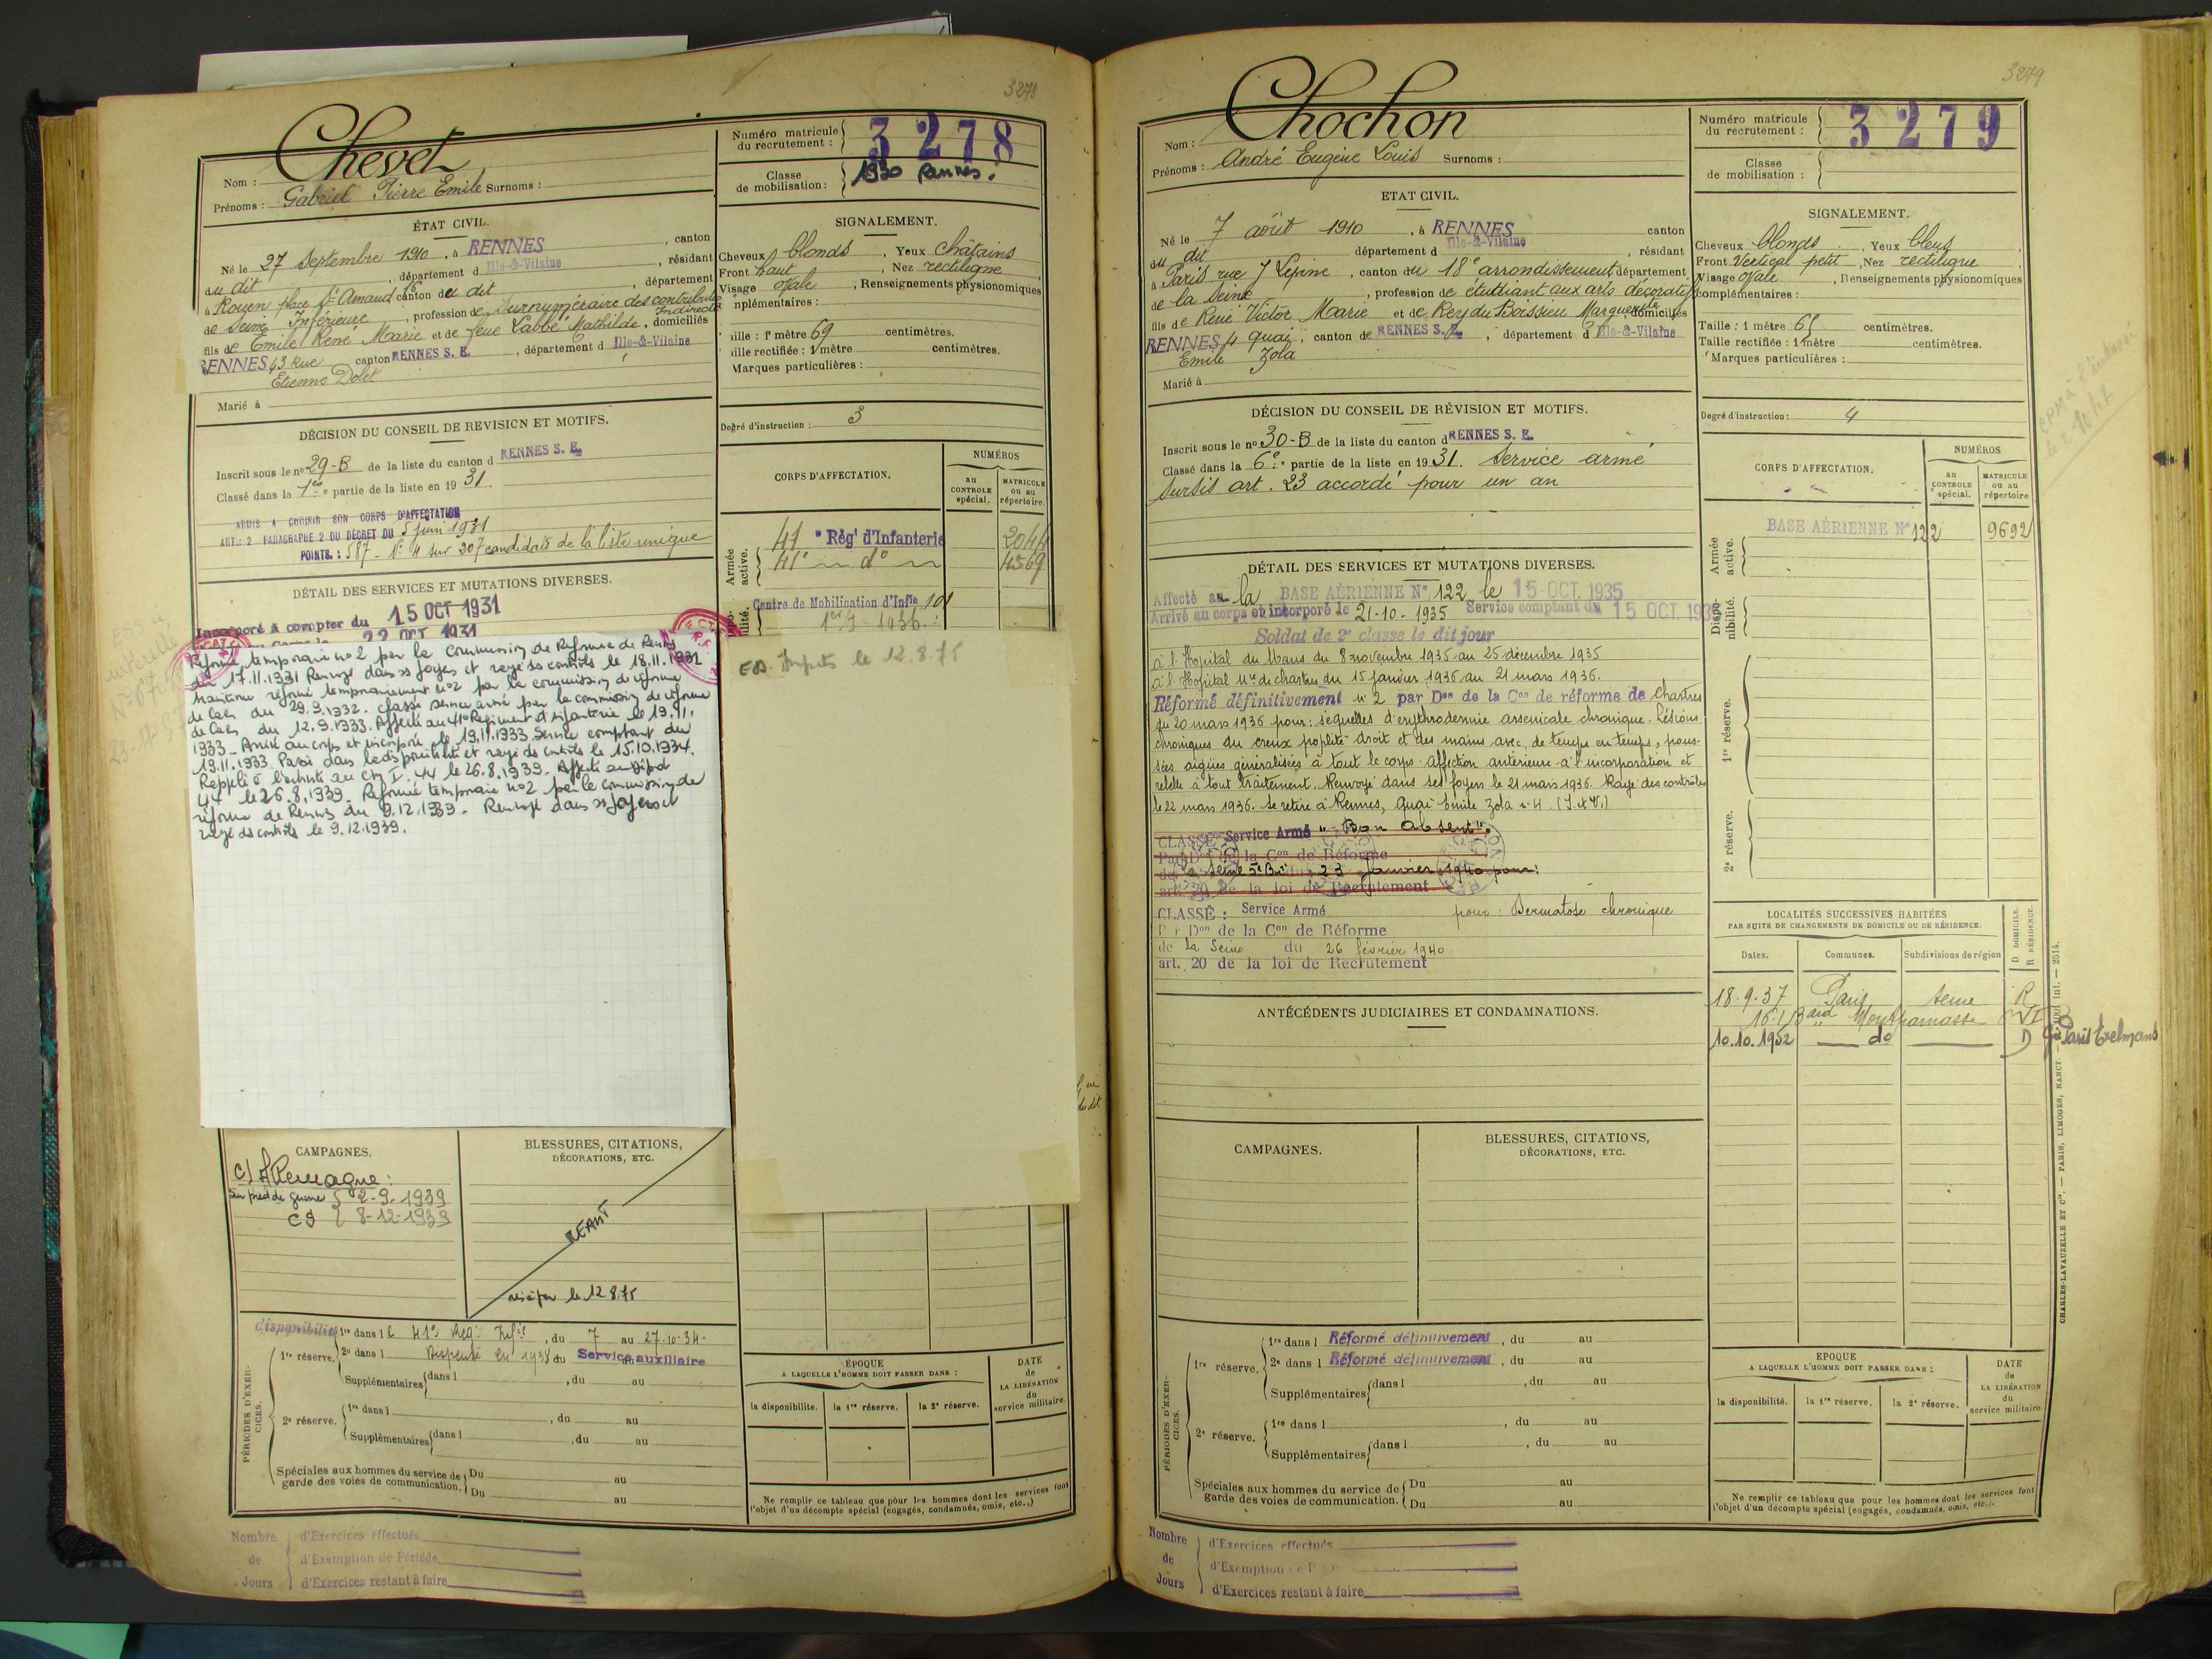 3278
Chevet
Nom :
Prénoms : Gabriel Pierre Emile Surnoms :
Numéro matricule du recrutement : 3278
Classe de mobilisation : 1930 Rennes.
ÉTAT CIVIL.
Né le 27 Septembre 1910, à RENNES, canton
du dit, département d Ille-&-Vilaine, résidant
à Rouen place St Amand canton du dit, département
de Seine Inférieure, profession de Surnuméraire des contributions Indirectes
fils de Emile René Marie et de feue Labbé Mathilde, domiciliés
RENNES 43 Rue Etienne Dolet canton RENNES S. E., département d Ille-&-Vilaine
Marié à
SIGNALEMENT.
Cheveux blonds, Yeux châtains
Front haut, Nez rectiligne
Visage ovale, Renseignements physionomiques
mplémentaires :
aille : 1 mètre 69 centimètres.
aille rectifiée : 1 mètre centimètres.
Marques particulières :
Degré d'instruction : 3
DÉCISION DU CONSEIL DE REVISION ET MOTIFS.
Inscrit sous le n° 29-B de la liste du canton d RENNES S. E.
Classé dans la 1ère partie de la liste en 1931.
ADMIS A CHOISIR SON CORPS D'AFFECTATION
ART.: 2 PARAGRAPHE 2 DU DÉCRET DU 5 juin 1931
POINTS. : 587 - N° 4 sur 207 candidats de la liste unique
CORPS D'AFFECTATION.
NUMÉROS
au CONTROLE spécial.
MATRICULE ou au répertoire.
Armée active.
41e Régt d'Infanterie 2044
41e d° 4569
Centre de Mobilisation d'Infie 101
1er 9 1936
DÉTAIL DES SERVICES ET MUTATIONS DIVERSES.
Incorporé à compter du 15 OCT 1931
22 OCT 1931
Réformé temporaire n°2 par la Commission de Réforme de Rennes
du 17.11.1931 Renvoyé dans ses foyers et rayé des contrôles le 18.11.1931
Maintenu réformé temporairement n°2 par la commission de réforme
de Caen du 29.9.1932. Classé service armé par la commission de réforme
de Caen du 12.9.1933. Affecté au 41e Régiment d'infanterie le 19.11.
1933 - Arrivé au corps et incorporé le 19.11.1933 Service comptant du
19.11.1933. Passé dans la disponibilité et rayé des contrôles le 15.10.1934.
Rappelé à l'activité au CM I. 44 le 26.8.1939. Affecté au Dépôt
44 le 26.8.1939. Réformé temporaire n°2 par la commission de
réforme de Rennes du 9.12.1939 - Renvoyé dans ses foyers et
rayé des contrôles le 9.12.1939.
le 12.8.75
CAMPAGNES.
C/ Allemagne :
Sur pied de guerre 2-9-1939
CS 8-12-1939
BLESSURES, CITATIONS,
DÉCORATIONS, ETC.
NEANT
le 12 8 75
PÉRIODES D'EXERCICES.
disponibilité 1re dans le 41e Rég. Infie, du 7 au 27-10-34-
1re réserve. 2e dans l Dispensé en 1938 du Service auxiliaire
Supplémentaires dans l , du au
2e réserve. 1re dans l , du au
Supplémentaires dans l , du au
Spéciales aux hommes du service de garde des voies de communication. Du au
Du au
ÉPOQUE
A LAQUELLE L'HOMME DOIT PASSER DANS :
la disponibilité. la 1re réserve. la 2e réserve.
DATE de LA LIBÉRATION du service militaire.
Ne remplir ce tableau que pour les hommes dont les services font
l'objet d'un décompte spécial (engagés, condamnés, omis, etc.,)
Nombre de Jours
d'Exercices effectués
d'Exemption de Période
d'Exercices restant à faire
3279
Chochon
Nom :
Prénoms : André Eugène Louis Surnoms :
Numéro matricule du recrutement : 3279
Classe de mobilisation :
ETAT CIVIL.
Né le 7 août 1910, à RENNES canton
du dit département d Ille-&-Vilaine résidant
à Paris rue J Lépine, canton du 18e arrondissement département
de la Seine, profession de étudiant aux arts décoratifs
fils de René Victor Marie et de Rey du Boissieu Marguerite domiciliés
RENNES 4 quai Emile Zola, canton de RENNES S. E., département d Ille-&-Vilaine
Marié à
SIGNALEMENT.
Cheveux blonds, Yeux bleus
Front Vertical petit, Nez rectiligne
Visage ovale, Renseignements physionomiques
complémentaires :
Taille : 1 mètre 65 centimètres.
Taille rectifiée : 1 mètre centimètres.
Marques particulières :
Degré d'instruction : 4
DÉCISION DU CONSEIL DE RÉVISION ET MOTIFS.
Inscrit sous le n° 30-B de la liste du canton d RENNES S. E.
Classé dans la 6e partie de la liste en 1931. Service armé
Sursis art. 23 accordé pour un an
CORPS D'AFFECTATION.
NUMÉROS
au CONTROLE spécial.
MATRICULE ou au répertoire
Armée active.
BASE AÉRIENNE N° 122 9692
Disponibilité.
1re réserve.
2e réserve.
DÉTAIL DES SERVICES ET MUTATIONS DIVERSES.
Affecté à la BASE AÉRIENNE N° 122 le 15 OCT. 1935
Arrivé au corps et incorporé le 21-10-1935 Service comptant du 15 OCT. 1935
Soldat de 2e classe le dit jour
à l'Hopital du Mans du 8 novembre 1935 au 25 décembre 1935
à l'Hopital Mre de Chartres du 15 janvier 1936 au 21 mars 1936.
Réformé définitivement n° 2 par Don de la Con de réforme de Chartres
du 20 mars 1936 pour : séquelles d'erythrodermie arsenicale chronique. Lésions
chroniques du creux poplité droit et des mains avec, de temps en temps, pous-
sées aigües généralisées à tout le corps. Affection antérieure à l'incorporation et
rebelle à tout traitement. Renvoyé dans ses foyers le 21 mars 1936. Rayé des contrôles
le 22 mars 1936. Se retire à Rennes, quai Emile Zola n° 4. (I. & V.)
CLASSÉ Service Armé "Bon Absent".
Par Don de la Con de Réforme
de la Seine 5e Bau du 23 janvier 1940 pour :
art. 20 de la loi de Recrutement
CLASSÉ : Service Armé pour : Dermatose chronique
Par Don de la Con de Réforme
de la Seine du 26 février 1940
art. 20 de la loi de Recrutement
LOCALITÉS SUCCESSIVES HABITÉES
PAR SUITE DE CHANGEMENTS DE DOMICILE OU DE RÉSIDENCE.
Dates. Communes. Subdivisions de région D DOMICILE. R RÉSIDENCE.
18.9.37 Paris Seine R
Montparnasse VI
10.10.1952 do D
ANTÉCÉDENTS JUDICIAIRES ET CONDAMNATIONS.
CAMPAGNES.
BLESSURES, CITATIONS,
DÉCORATIONS, ETC.
PÉRIODES D'EXERCICES.
1re réserve. 1re dans l Réformé définitivement, du au
2e dans l Réformé définitivement, du au
Supplémentaires dans l , du au
2e réserve. 1re dans l , du au
Supplémentaires dans l , du au
Spéciales aux hommes du service de garde des voies de communication. Du au
Du au
EPOQUE
A LAQUELLE L'HOMME DOIT PASSER DANS :
la disponibilité. la 1re réserve. la 2e réserve.
DATE de LA LIBÉRATION du service militaire.
Ne remplir ce tableau que pour les hommes dont les services font
l'objet d'un décompte spécial (engagés, condamnés, omis, etc.).
CHARLES-LAVAUZELLE ET Cie. — PARIS, LIMOGES, NANCY.
Nombre de Jours
d'Exercices effectués
d'Exemption de
d'Exercices restant à faire